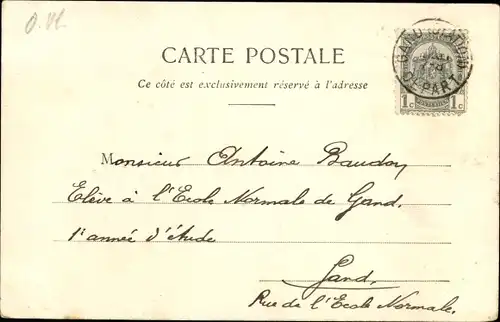 O. Vl.
GAND (STATION)
DEPART
1c 1c
CARTE POSTALE
Ce côté est exclusivement réservé à l'adresse
Monsieur Antoine Baudoy
Elève à l'Ecole Normale de Gand.
1e année d'étude
Gand.
Rue de l'Ecole Normale.